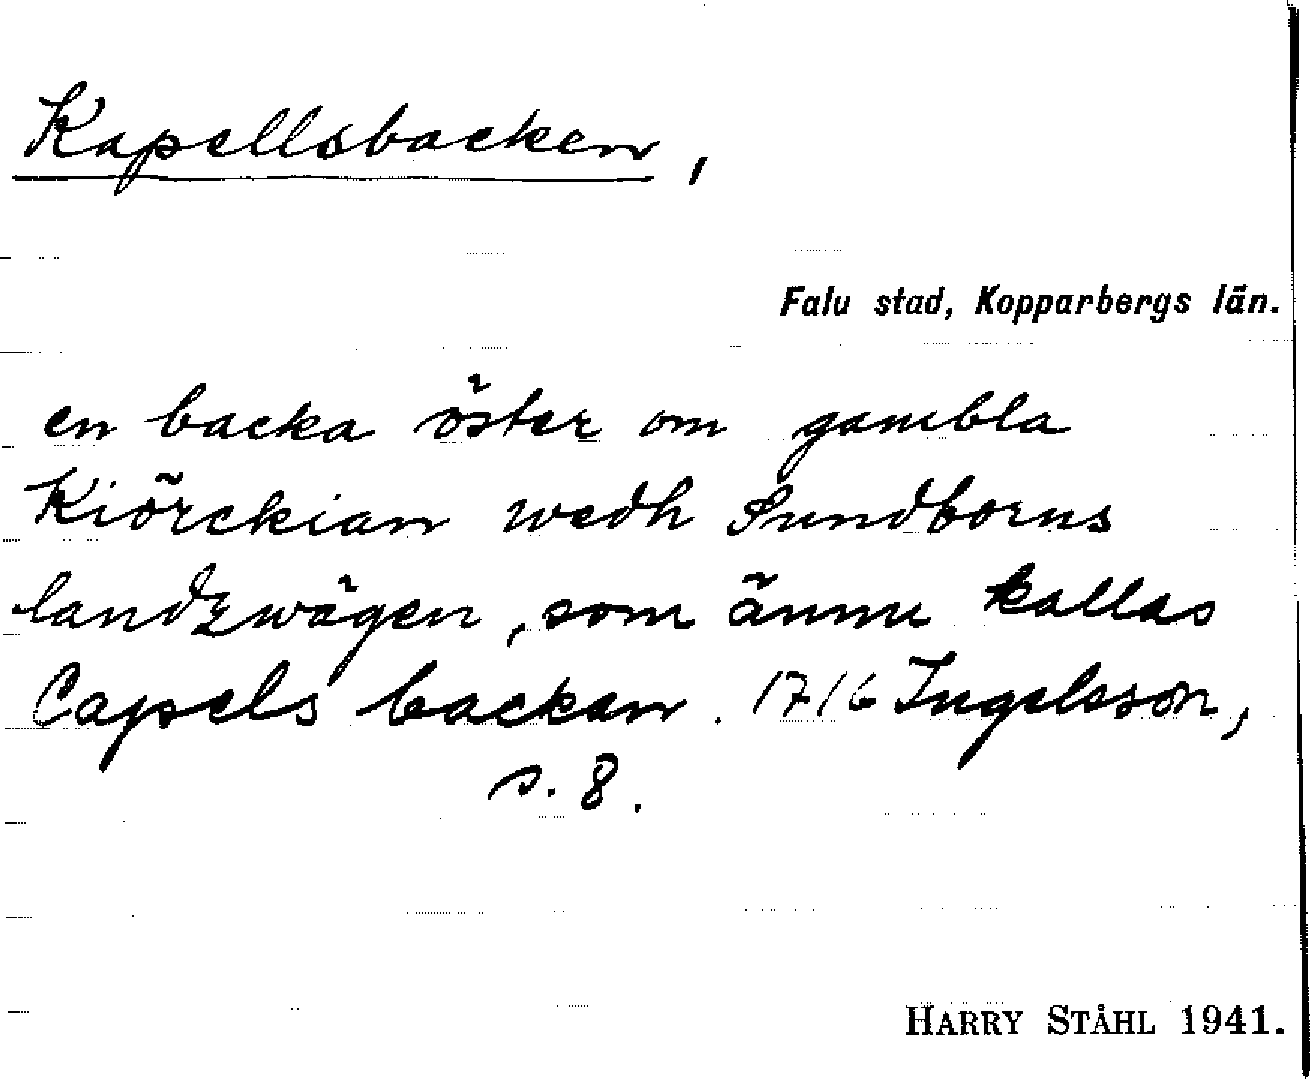 Kapellsbacken,
Falu stad, Kopparbergs län.
en backa öster om gambla
Kiörckian wedh Sundborns
landzwägen, som ännu kallas
Capels backan. 1716 Ingelsson,
s. 8.
HARRY STÅHL 1941.